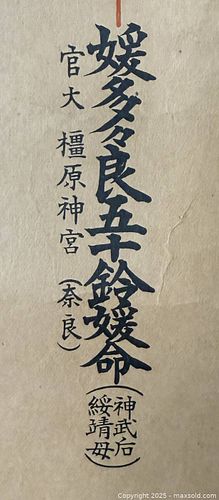 媛多々良五十鈴媛命
(神武后
綏靖母)
官大 橿原神宮(奈良)
© 2025 - maxsold.com